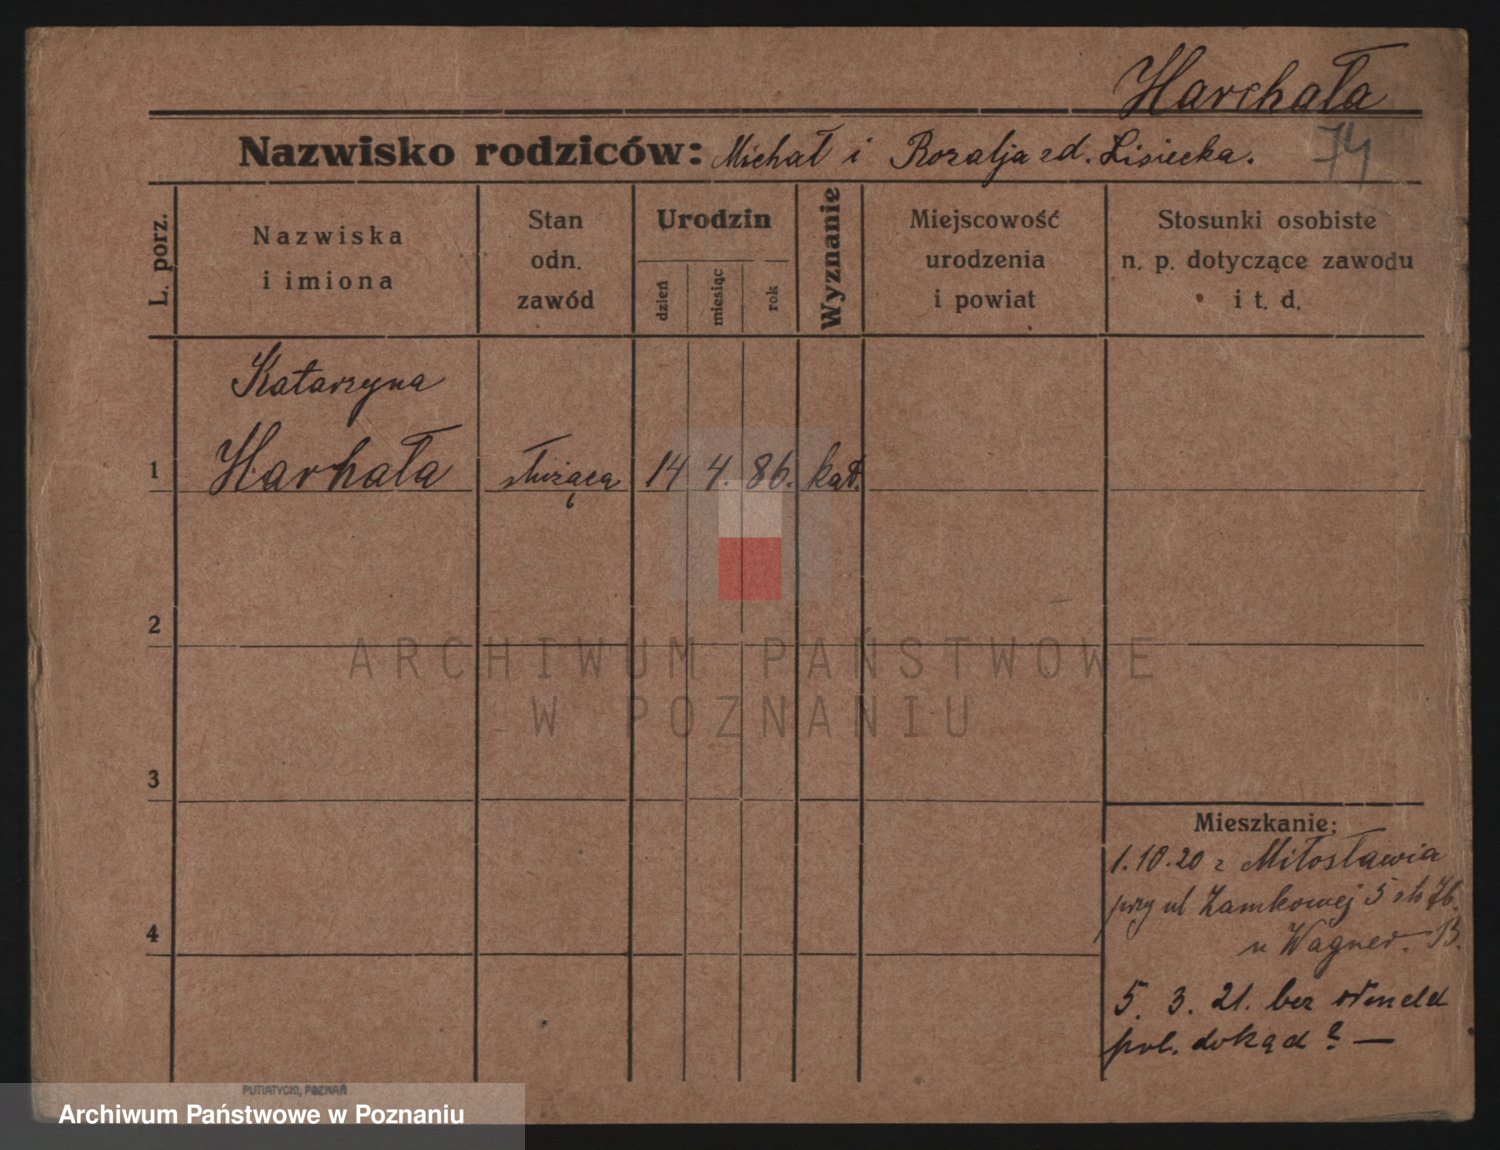 Harchała
Nazwisko rodziców: Michał i Rozalja zd. Lisiecka.
74
L. porz.
Nazwiska
i imiona
Stan
odn.
zawód
Urodzin
dzień
miesiąc
rok
Wyznanie
Miejscowość
urodzenia
i powiat
Stosunki osobiste
n. p. dotyczące zawodu
i t. d.
Katarzyna
1 Harhała służąca 14 4. 86. kat.
2
3
4
Mieszkanie:
1.10.20 z Miłosławia
przy ul Zamkowej 5
u Wagner. B.
5. 3. 21. bez odmeld
pol. dokąd? —
ARCHIWUM PAŃSTWOWE
W POZNANIU
PUTIATYCKI, POZNAŃ
Archiwum Państwowe w Poznaniu